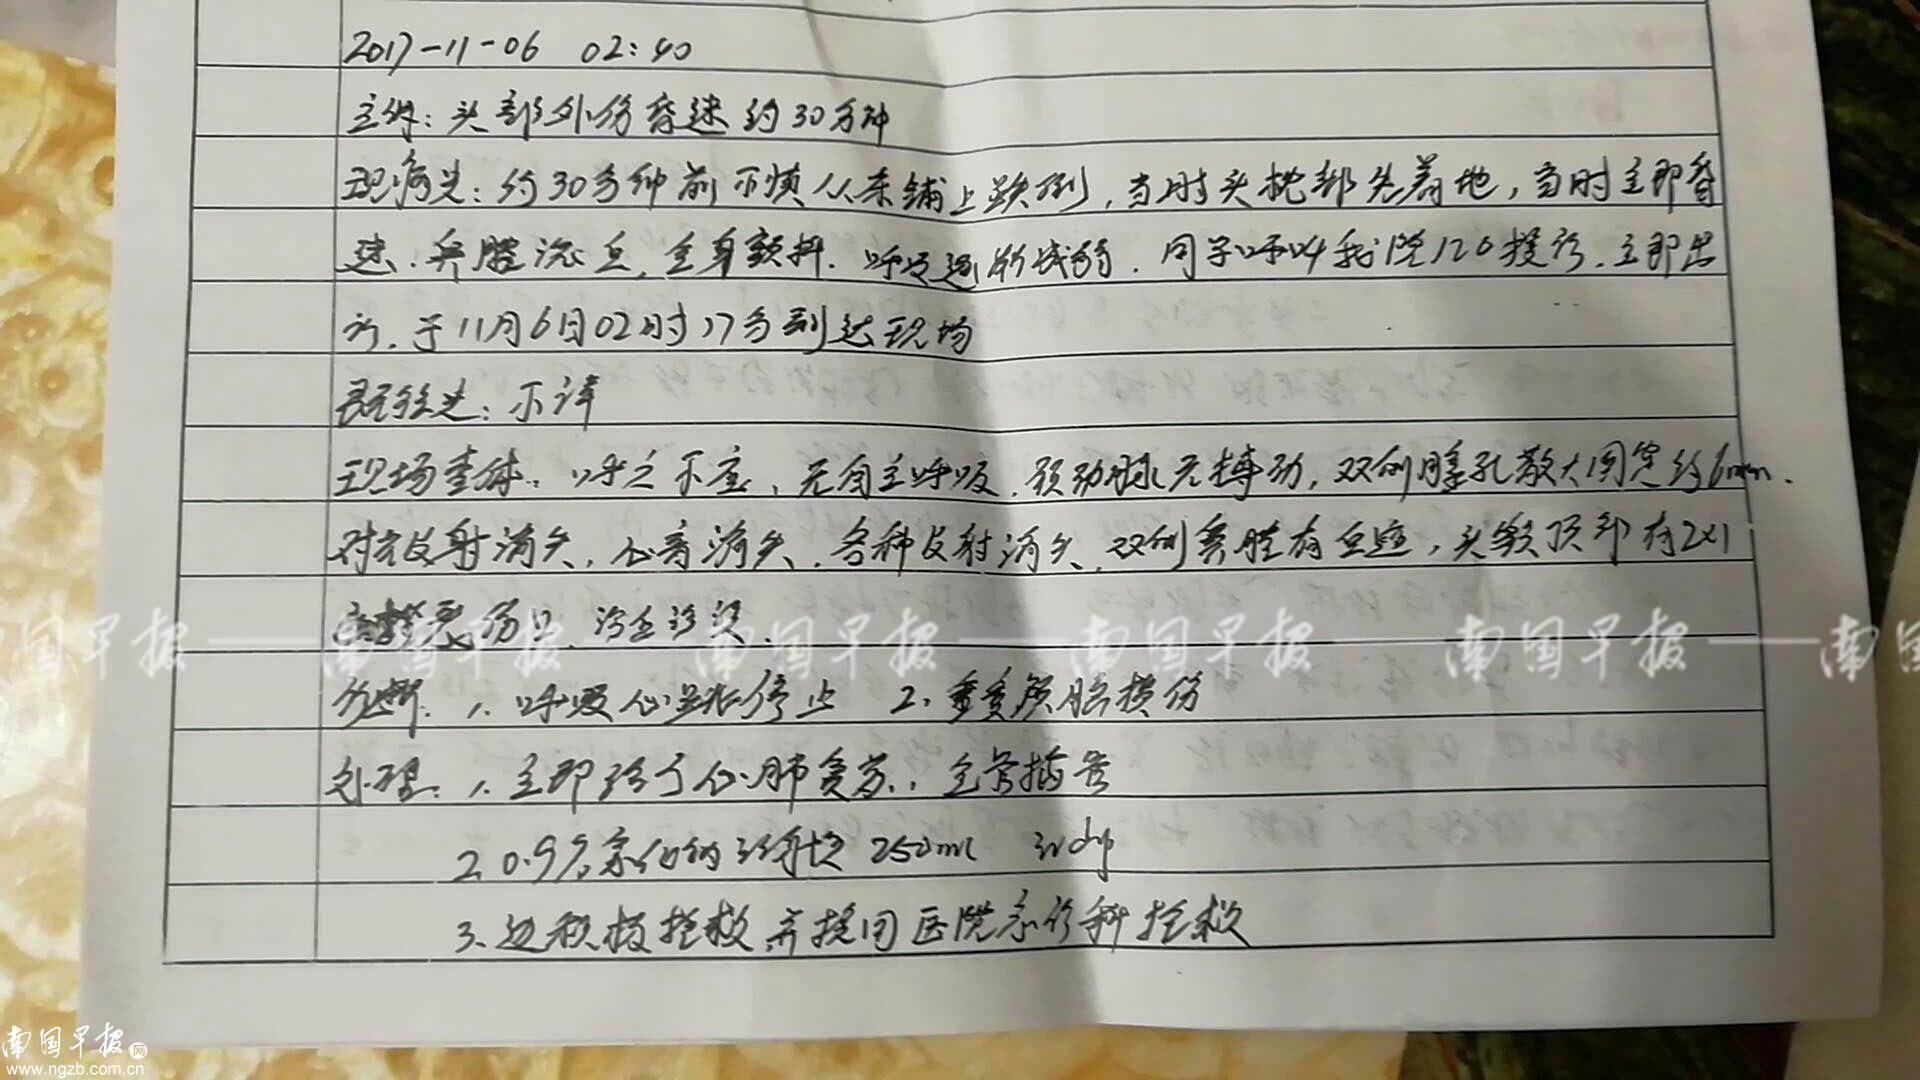 2017-11-06 02:40
主诉：头部外伤昏迷约30分钟
现病史：约30分钟前不慎从床铺上跌倒，当时头枕部先着地，当时立即昏
迷，鼻腔流血，全身颤抖，呼吸逐渐减弱，同学呼叫我院120接诊，立即出
诊，于11月6日02时17分到达现场
既往史：不详
现场查体：呼之不应，无自主呼吸，颈动脉无搏动，双侧瞳孔散大固定约6mm，
对光反射消失，心音消失，各种反射消失，双侧鼻腔有血迹，头额顶部有2x1
裂伤口
诊断：1、呼吸心跳停止 2、重度颅脑损伤
处理：1、立即给予心肺复苏，气管插管
2、0.9%氯化钠注射液250ml ivdrip
3、边积极抢救并接回医院急诊科抢救
南国早报
南国早报
南国早报
南国早报
南国早报网
www.ngzb.com.cn